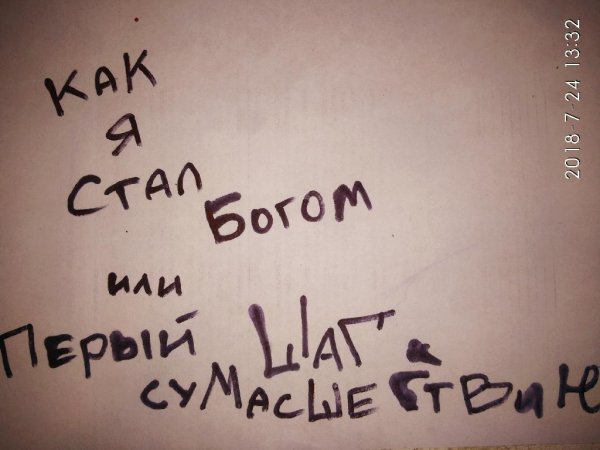 КАК
Я
СТАЛ БОГОМ
ИЛИ
ПЕРЫЙ ШАГ К
СУМАСШЕСТВИЮ
2018-7-24 13:32